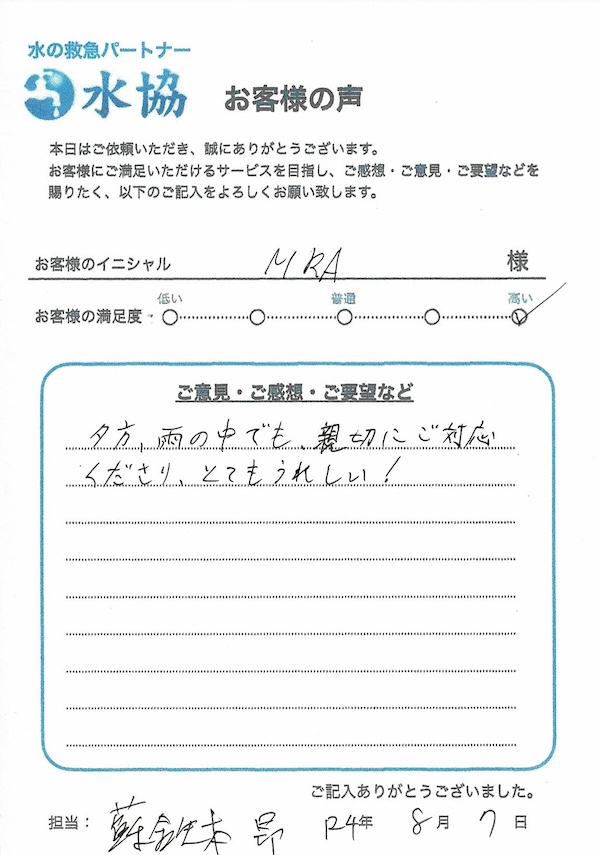 水の救急パートナー
水協 お客様の声
本日はご依頼いただき、誠にありがとうございます。
お客様にご満足いただけるサービスを目指し、ご感想・ご意見・ご要望などを
賜りたく、以下のご記入をよろしくお願い致します。
お客様のイニシャル MKA 様
低い 普通 高い
お客様の満足度
ご意見・ご感想・ご要望など
夕方、雨の中でも、親切にご対応
くださり、とてもうれしい!
ご記入ありがとうございました。
担当: R4年 8月 7日